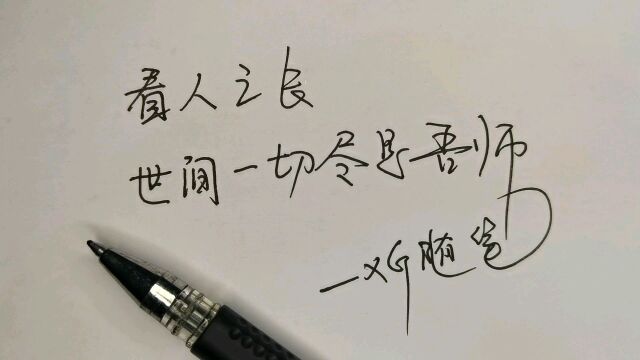 看人之长
世间一切尽是吾师
一邓随笔